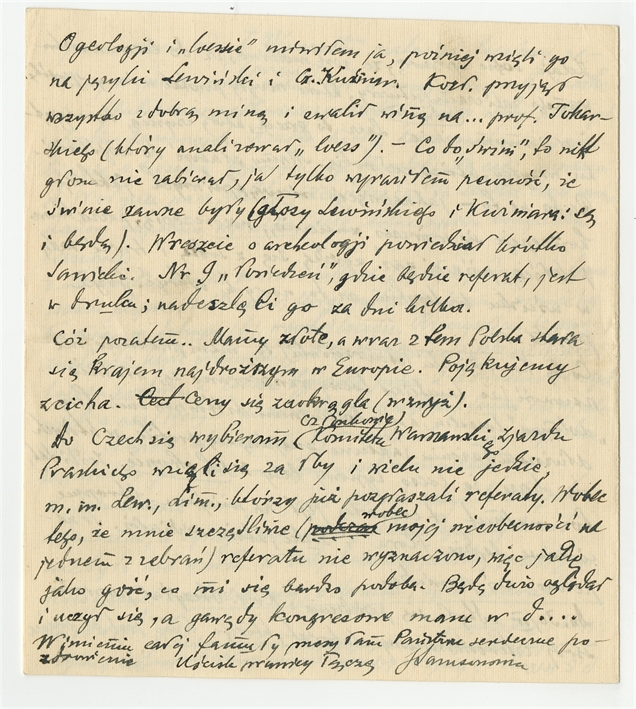 O geologji i „loessie" mówiłem ja, później wzięli go
na języki Lewiński i Cz. Kuźniar. Kozł. przyjął
wszystko z dobrą miną i zwalił winę na... prof. Tokar-
skiego (który analizował „loess"). – Co do „świni", to nikt
głosu nie zabierał, ja tylko wyraziłem pewność, że
świnie zawne były (głosy Lewińskiego i Kuźniara: są
i będą). Wreszcie o archeologji powiedział krótko
Sawicki. Nr 9 „Posiedzeń", gdzie będzie referat, jest
w druku; nadeszlę Ci go za dni kilka.
Cóż pozatem.. Mamy złote, a wraz z tem Polska stała
się krajem najdroższym w Europie. Pojękujemy
zcicha. Ceny się zaokrągla (wzwyż).
Do Czech się wybieram (Komitetu Warszawski Zjazdu
Praskiego wzięli się za łby i wielu nie jedzie,
m. in. Lew., Lim., którzy już pozgłaszali referaty. Wobec
tego, że mnie szczęśliwie (podczas wobec mojej nieobecności na
jednem z zebrań) referatu nie wyznaczono, więc jadę
jako gość, co mi się bardzo podoba. Będę dużo oglądał
i uczył się, a gawędy kongresowe mam w d....
W imieniu całej familji przesyłam Państwu serdeczne po-
zdrowienia Uścisk prawicy łączą Samsonowicz